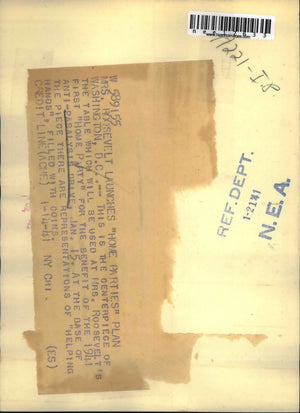 W 689155
MRS. ROOSEVELT LAUNCHES "HOME PARTIES" PLAN
WASHINGTON, D.C. -- THIS IS THE CENTERPIECE OF
THE TABLE WHICH WILL BE USED AT MRS. ROOSEVELT'S
FIRST "HOME PARTY" FOR THE BENEFIT OF THE 1941
ANTI-PARALYSIS DRIVE, JAN. AT THE BASE OF
THE PIECE THERE ARE REPRESENTATIONS OF "HELPING
HANDS", FILLED WITH COINS.
CREDIT LINE (ACME) 1-4-41 NY CHI. (ES)
REF. DEPT.
1-21-41
N.E.A.